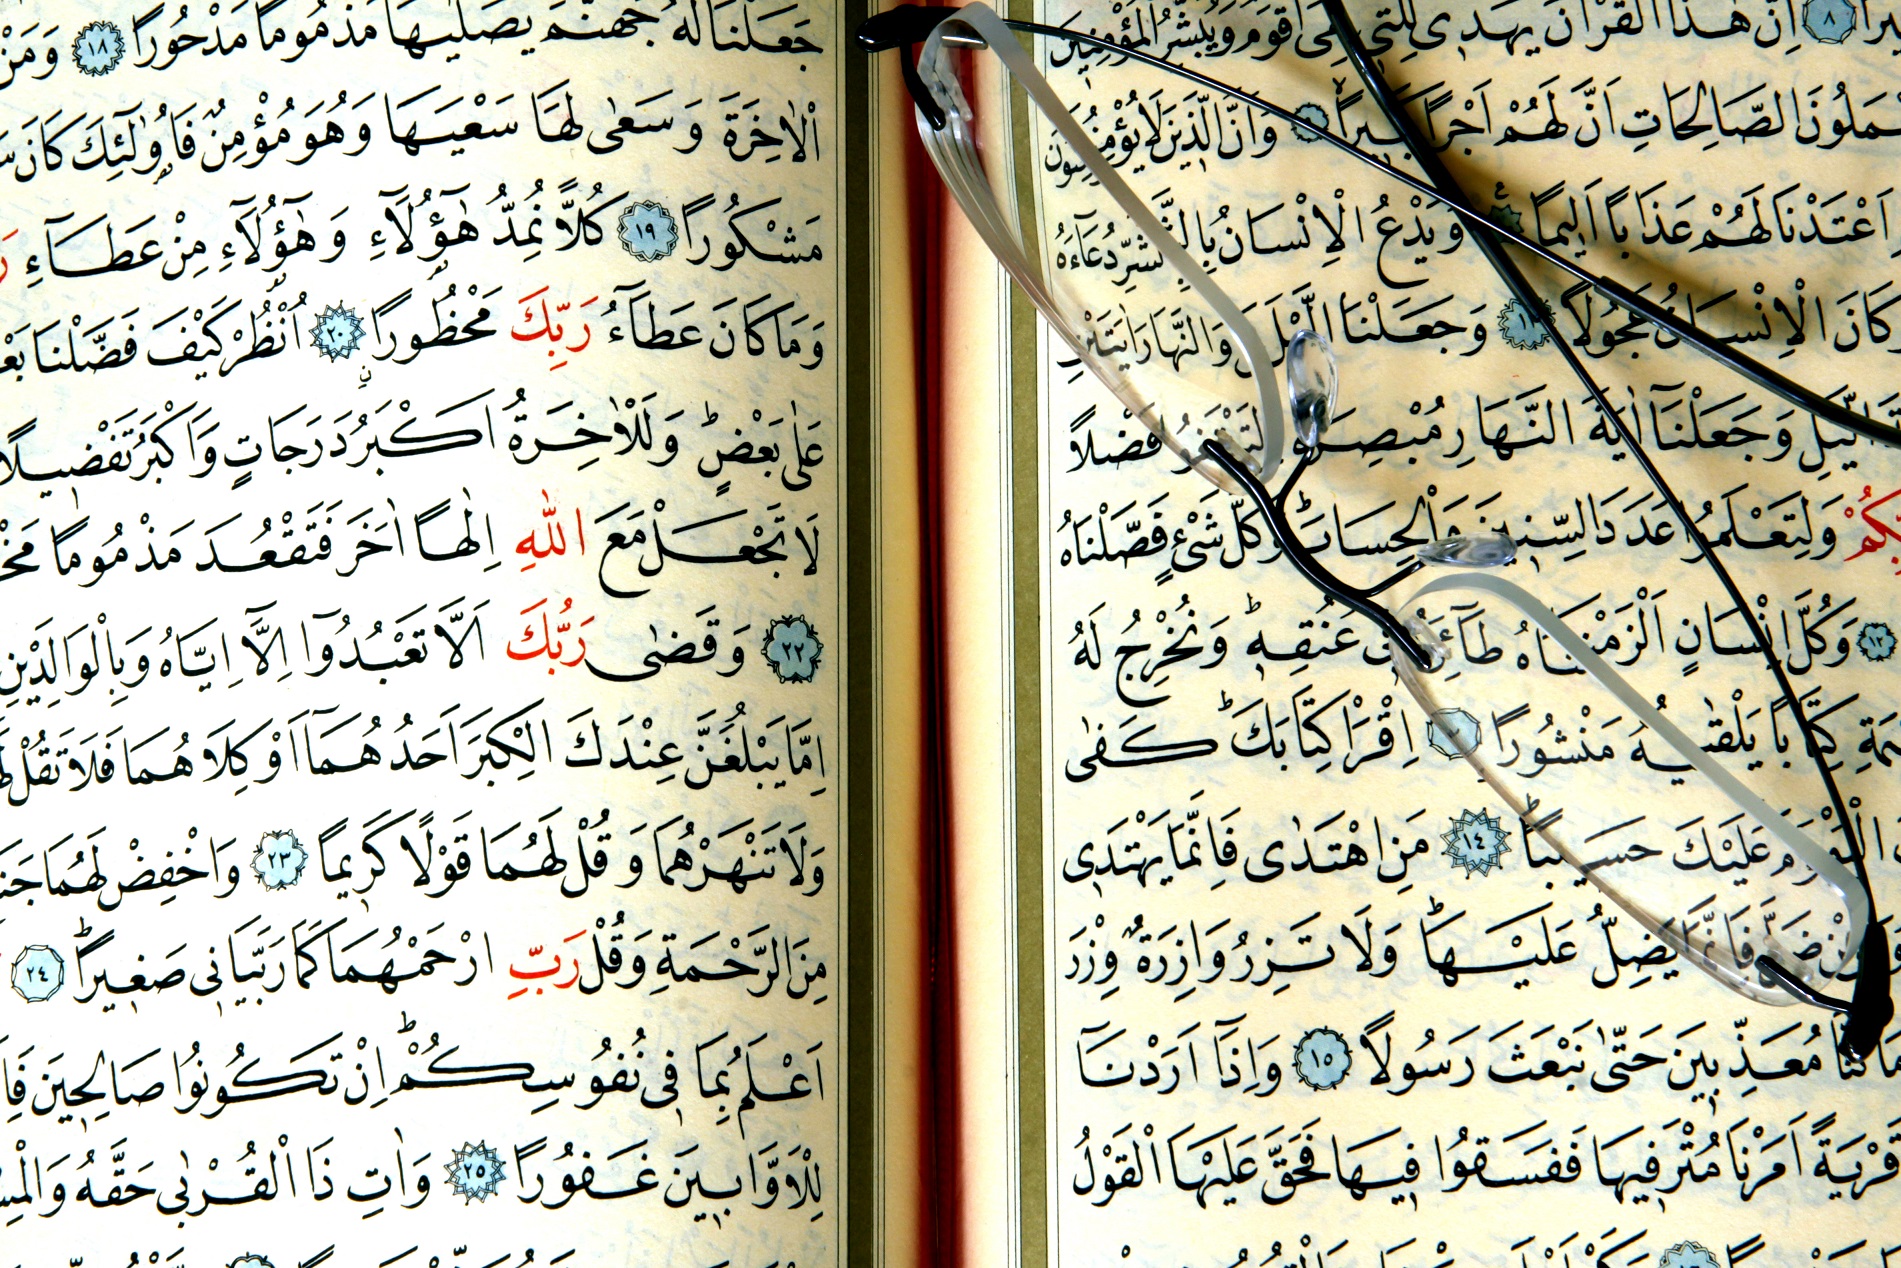 ٨ اِنَّ هٰذَا الْقُرْاٰنَ يَهْد۪ي لِلَّت۪ي هِيَ اَقْوَمُ وَيُبَشِّرُ الْمُؤْمِن۪ينَ
الصَّالِحَاتِ اَنَّ لَهُمْ اَجْرًا كَب۪يرًا ٩ وَاَنَّ الَّذ۪ينَ لَا يُؤْمِنُونَ
اَعْتَدْنَا لَهُمْ عَذَابًا اَل۪يمًا ١٠ وَيَدْعُ الْاِنْسَانُ بِالشَّرِّ دُعَٓاءَهُ
وَكَانَ الْاِنْسَانُ عَجُولًا ١١ وَجَعَلْنَا الَّيْلَ وَالنَّهَارَ اٰيَتَيْنِ
الَّيْلِ وَجَعَلْنَٓا اٰيَةَ النَّهَارِ مُبْصِرَةً لِتَبْتَغُوا فَضْلًا
وَلِتَعْلَمُوا عَدَدَ السِّن۪ينَ وَالْحِسَابَۜ وَكُلَّ شَيْءٍ فَصَّلْنَاهُ
١٢ وَكُلَّ اِنْسَانٍ اَلْزَمْنَاهُ طَٓائِرَهُ ف۪ي عُنُقِه۪ۜ وَنُخْرِجُ لَهُ
كِتَابًا يَلْقٰيهُ مَنْشُورًا ١٣ اِقْرَأْ كِتَابَكَۜ كَفٰى
الْيَوْمَ عَلَيْكَ حَس۪يبًاۜ ١٤ مَنِ اهْتَدٰى فَاِنَّمَا يَهْتَد۪ي
ضَلَّ فَاِنَّمَا يَضِلُّ عَلَيْهَاۜ وَلَا تَزِرُ وَازِرَةٌ وِزْرَ
كُنَّا مُعَذِّب۪ينَ حَتّٰى نَبْعَثَ رَسُولًا ١٥ وَاِذَٓا اَرَدْنَٓا
قَرْيَةً اَمَرْنَا مُتْرَف۪يهَا فَفَسَقُوا ف۪يهَا فَحَقَّ عَلَيْهَا الْقَوْلُ
جَعَلْنَا لَهُ جَهَنَّمَ يَصْلٰيهَا مَذْمُومًا مَدْحُورًا ١٨ وَمَنْ
الْاٰخِرَةَ وَسَعٰى لَهَا سَعْيَهَا وَهُوَ مُؤْمِنٌ فَاُو۬لٰٓئِكَ كَانَ
مَشْكُورًا ١٩ كُلًّا نُمِدُّ هٰٓؤُ۬لَٓاءِ وَهٰٓؤُ۬لَٓاءِ مِنْ عَطَٓاءِ
وَمَا كَانَ عَطَٓاءُ رَبِّكَ مَحْظُورًا ٢٠ اُنْظُرْ كَيْفَ فَضَّلْنَا
عَلٰى بَعْضٍۜ وَلَلْاٰخِرَةُ اَكْبَرُ دَرَجَاتٍ وَاَكْبَرُ تَفْض۪يلًا
لَا تَجْعَلْ مَعَ اللّٰهِ اِلٰهًا اٰخَرَ فَتَقْعُدَ مَذْمُومًا
٢٢ وَقَضٰى رَبُّكَ اَلَّا تَعْبُدُٓوا اِلَّٓا اِيَّاهُ وَبِالْوَالِدَيْنِ
اِمَّا يَبْلُغَنَّ عِنْدَكَ الْكِبَرَ اَحَدُهُمَٓا اَوْ كِلَاهُمَا فَلَا تَقُلْ
وَلَا تَنْهَرْهُمَا وَقُلْ لَهُمَا قَوْلًا كَر۪يمًا ٢٣ وَاخْفِضْ لَهُمَا
مِنَ الرَّحْمَةِ وَقُلْ رَبِّ ارْحَمْهُمَا كَمَا رَبَّيَان۪ي صَغ۪يرًاۜ ٢٤
اَعْلَمُ بِمَا ف۪ي نُفُوسِكُمْۜ اِنْ تَكُونُوا صَالِح۪ينَ
لِلْاَوَّاب۪ينَ غَفُورًا ٢٥ وَاٰتِ ذَا الْقُرْبٰى حَقَّهُ